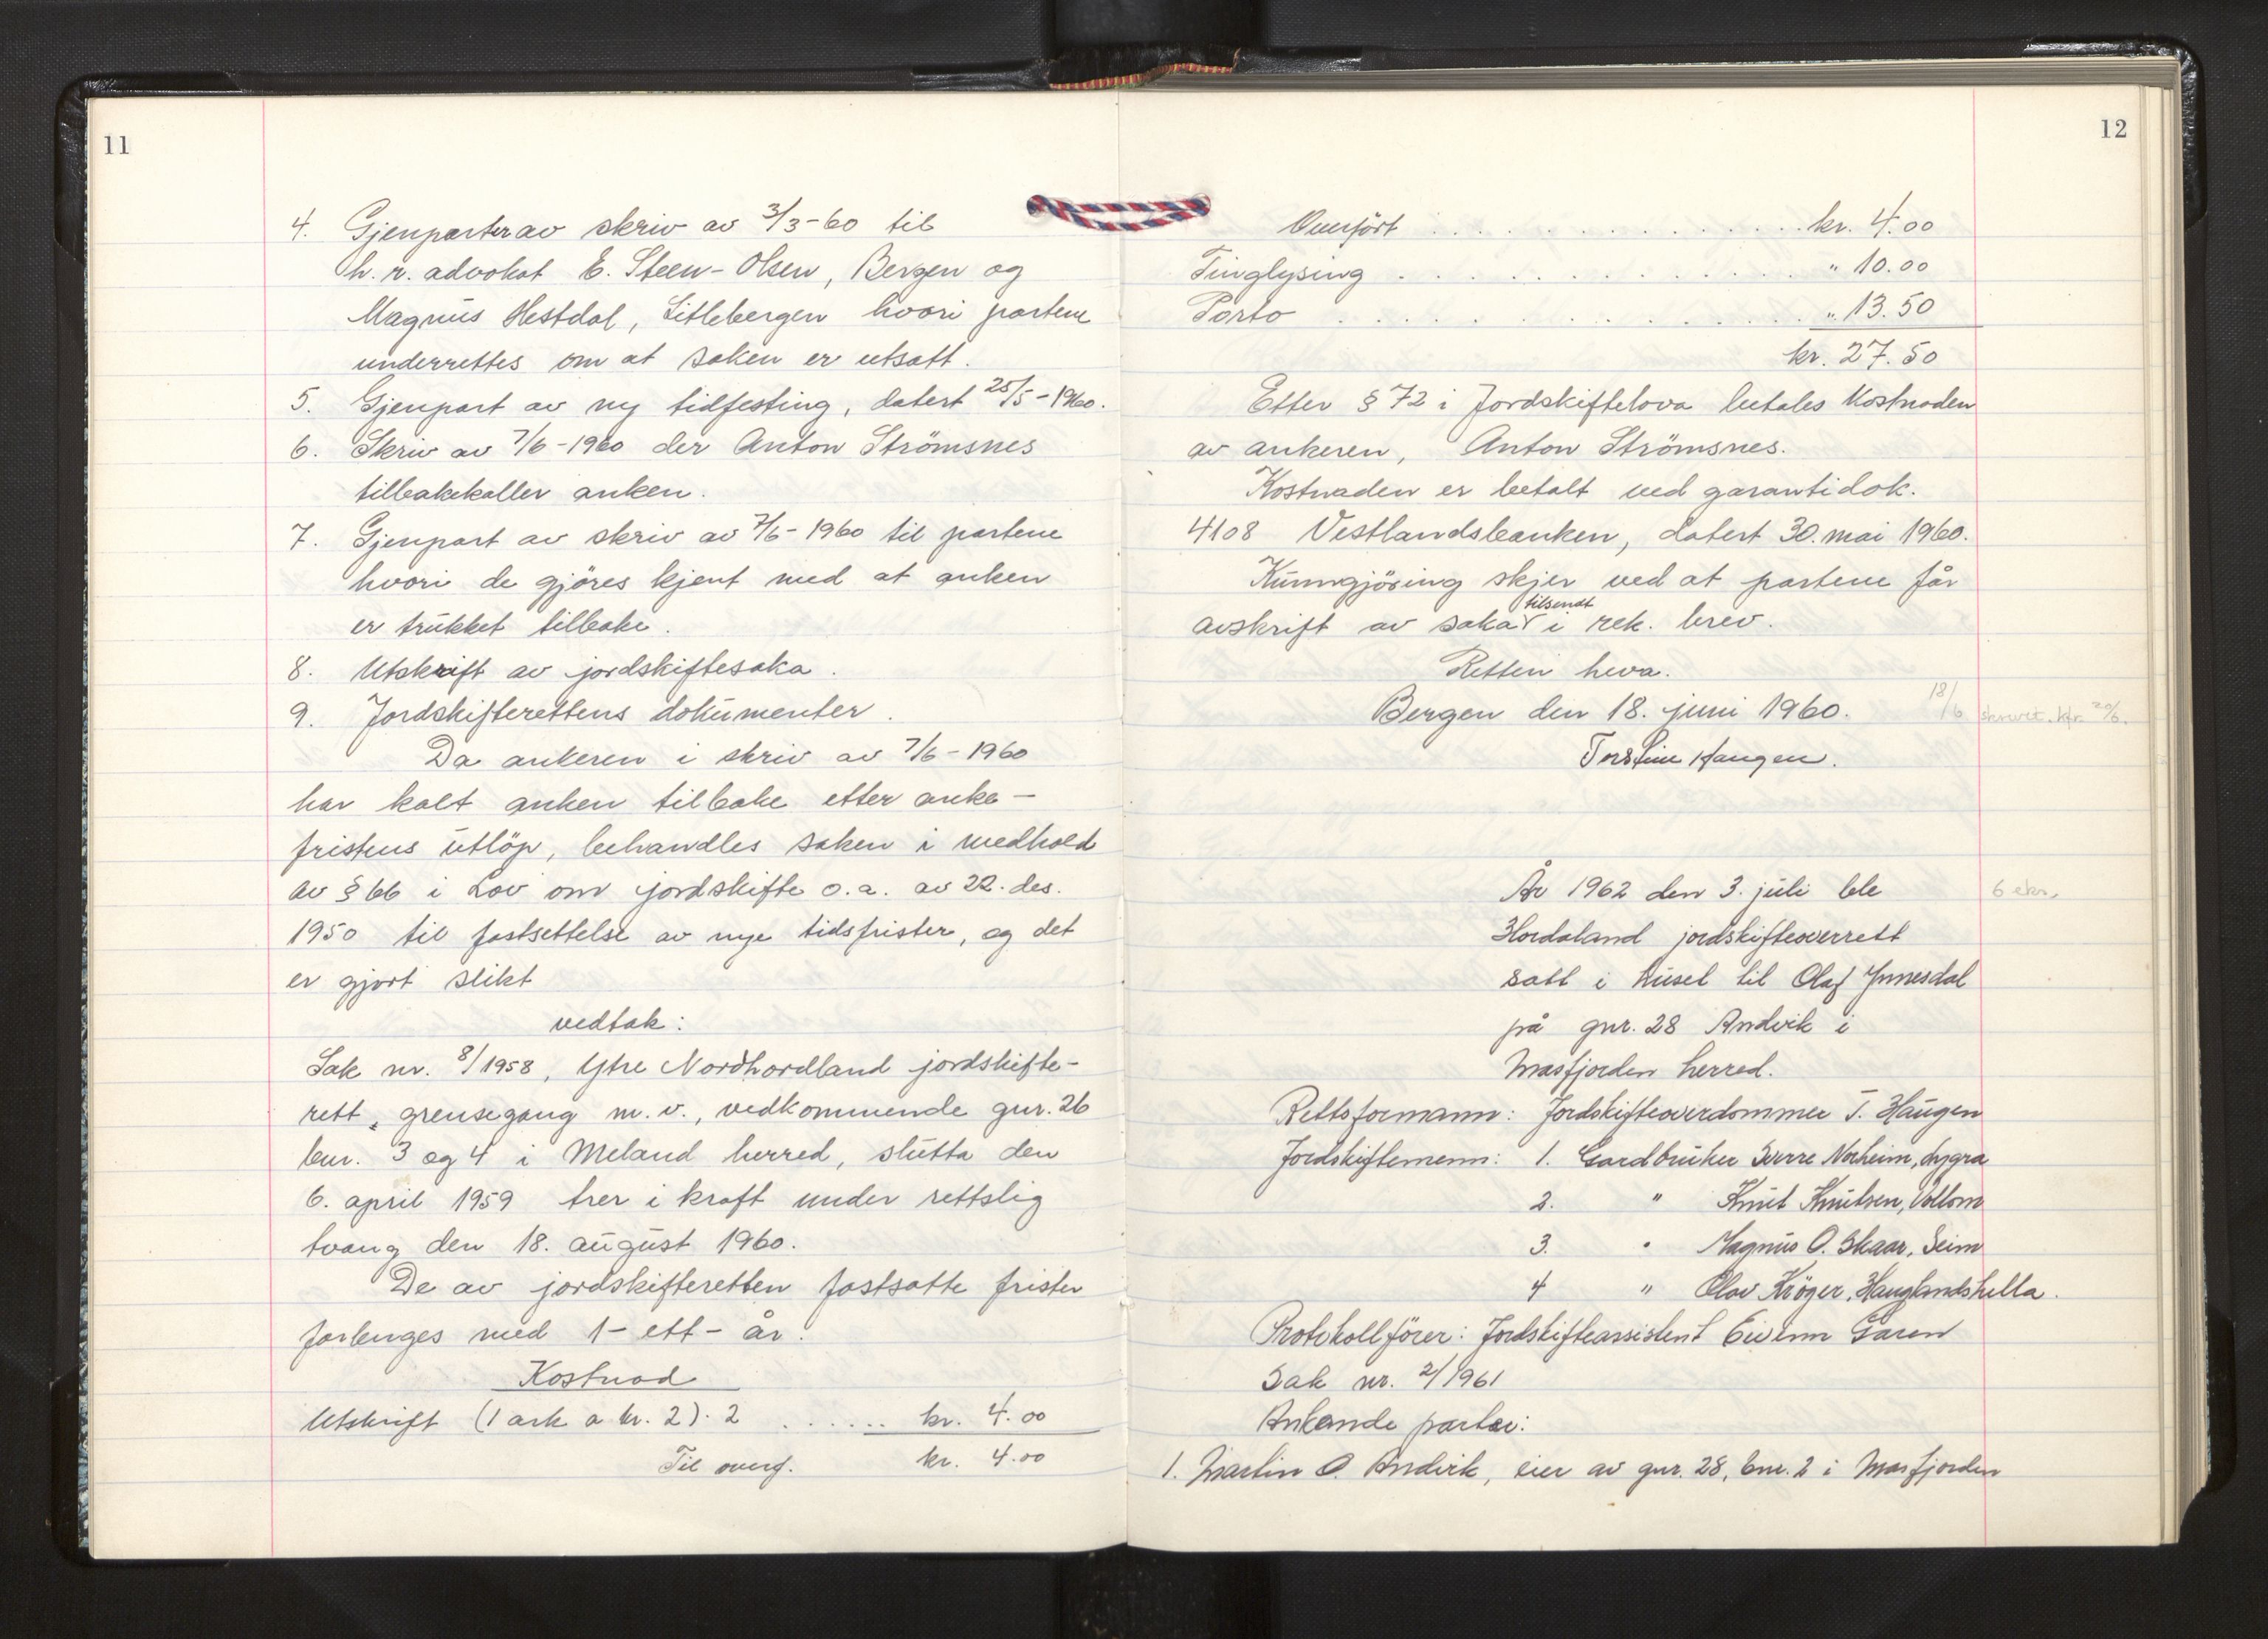 11
4. Gjenparter av skriv av 3/3-60 til
h. r. advokat E. Steen-Olsen, Bergen og
Magnus Hestdal, Litlebergen hvori partene
underrettes om at saken er utsatt.
5. Gjenpart av ny tidfesting, datert 25/5-1960.
6. Skriv av 7/6-1960 der Anton Strömsnes
tilbakekaller anken.
7. Gjenpart av skriv av 7/6-1960 til partene
hvori de gjöres kjent med at anken
er trukket tilbake.
8. Utskrift av jordskiftesaka.
9. Jordskifterettens dokumenter.
Da ankeren i skriv av 7/6-1960
har kalt anken tilbake etter anke-
fristens utlöp, behandles saken i medhold
av § 66 i Lov om jordskifte o.a. av 22. des.
1950 til fastsettelse av nye tidsfrister, og det
er gjort slikt
vedtak:
Sak nr. 8/1958, Ytre Nordhordland jordskifte-
rett, grensegang m.v., vedkommende gnr. 26
bnr. 3 og 4 i Meland herred, slutta den
6. april 1959 trer i kraft under rettslig
tvang den 18. august 1960.
De av jordskifteretten fastsatte frister
forlenges med 1-ett-år.
Kostnad
Utskrift (1 ark a kr. 2)·2 ...... kr. 4.00
Til overf. kr. 4.00
12
Overfört ................ kr. 4.00
Tinglysing ............. " 10.00
Porto .............. " 13.50
kr. 27.50
Etter § 72 i Jordskiftelova betales kostnaden
av ankeren, Anton Strömsnes.
Kostnaden er betalt ved garantidok.
4108 Vestlandsbanken, datert 30. mai 1960.
Kunngjöring skjer ved at partene får
tilsendt
avskrift av saka i rek. brev.
Retten heva.
Bergen den 18. juni 1960. 18/6
Torstein Haugen.
År 1962 den 3. juli ble 6 eks.
Hordaland jordskifteoverrett
satt i huset til Olaf Ynnesdal
på gnr. 28 Andvik i
Masfjorden herred.
Rettsformann: Jordskifteoverdommer T. Haugen
Jordskiftemenn: 1. Gardbruker Sverre Norheim, Lygra
2. " Knut Knutsen, Vollom
3. " Magnus O. Skaar, Seim
4 " Olav Kröger, Hauglandshella.
Protokollförer: Jordskifteassistent Eivinn Garen
Sak nr. 2/1961
Ankande parter:
1. Martin O. Andvik, eier av gnr. 28, bnr. 2 i Masfjorden